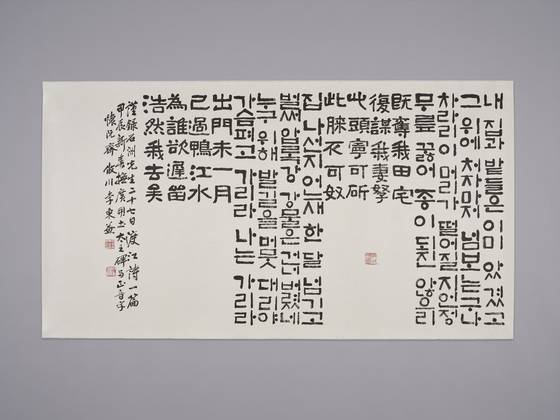 내 집과 밭들은 이미 았겼고
그 위에 처자마저 넘보는구나
차라리 머리가 떨어질지언정
무릎 꿇어 종이 되진 않으리
旣奪我田宅
復謀我妻孥
此頭寧可斫
此膝不可奴
집 나선지 어느새 한 달 넘기고
벌써 압록강 강물은 건너 버렸네
누구 위해 발길을 머뭇 대리야
가슴 펴고 가리라 나는 가리라
出門未一月
已過鴨江水
為誰欲遲留
浩然我去矣
謹錄石洲先生二十七日渡江詩一篇
甲辰新喜 廣開土大王碑 正音字
齋 川 李東益